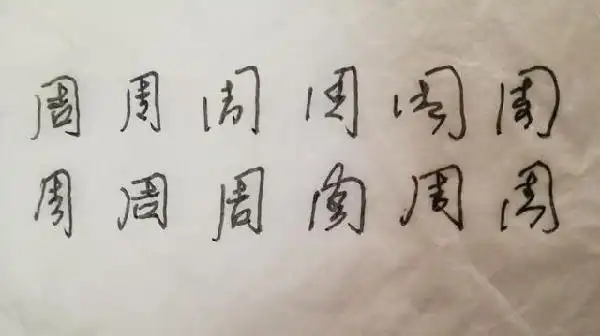 周周周周周周
周周周周周周